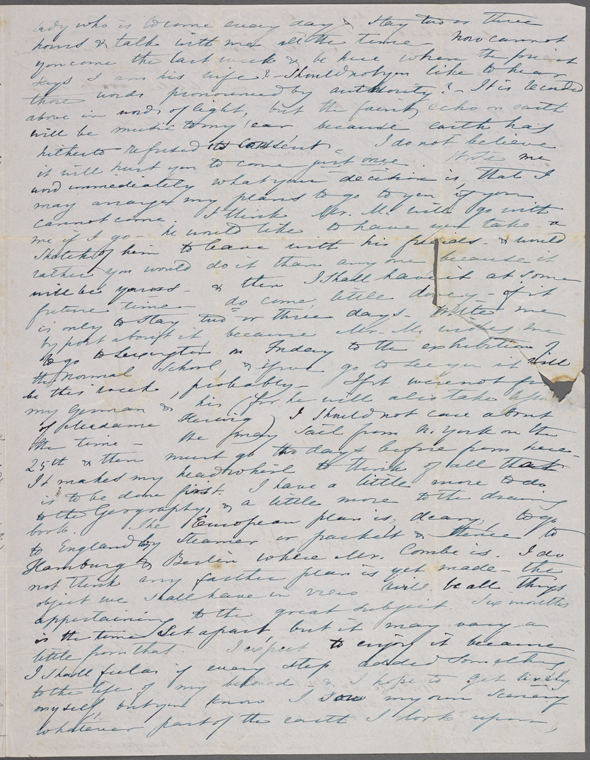 lady who is to come every day & stay two or three
hours & talk with me all the time. Now cannot
you come the last week & be here when the priest
says I am his wife? Should not you like to hear
those words pronounced by authority? It is recorded
above in words of light, but the faint echo on earth
will be music to my ear because earth has
hitherto refused its consent. I do not believe
it will hurt you to come just once. Write me
word immediately what your decision is, that I
may arrange my plans to go to you if you
cannot come. I think Mr. M. will go with
me if I go. he would like to have you take a
sketch of him to leave with his friends & would
rather you would do it than any one because it
will be yours - & then I shall have it at some
future time - do come, little dovey - if it
is only to stay two or three days. Write me
by post about it because Mr. M. wishes me
to go to Lexington on Friday to the exhibition of
the Normal School, & if you go to see you it will
be this week, probably - If it were not for
my German & his (for he will also take
of Madame) I should not care about
the time - We may sail from N. York on the
25th & then must go two days before from here.
It makes my head whirl to think of all that
is to be done first. I have a little more to do
to the Geography, & a little more to the drawing
book. The European plan is, deary, to go
to England by steamer or packet & thence to
Hamburg & Berlin where Mr. Combe is. I do
not think any farther plan is yet made - the
object we shall have in view will be all things
appertaining to the great subject. Six months
is the time set apart but it may vary a
little from that. I expect to enjoy it because
I shall feel as if every step added something
to the life of my beloved. I hope to get
myself, but you know I sow my own scenery
whatever part of the earth I look upon,